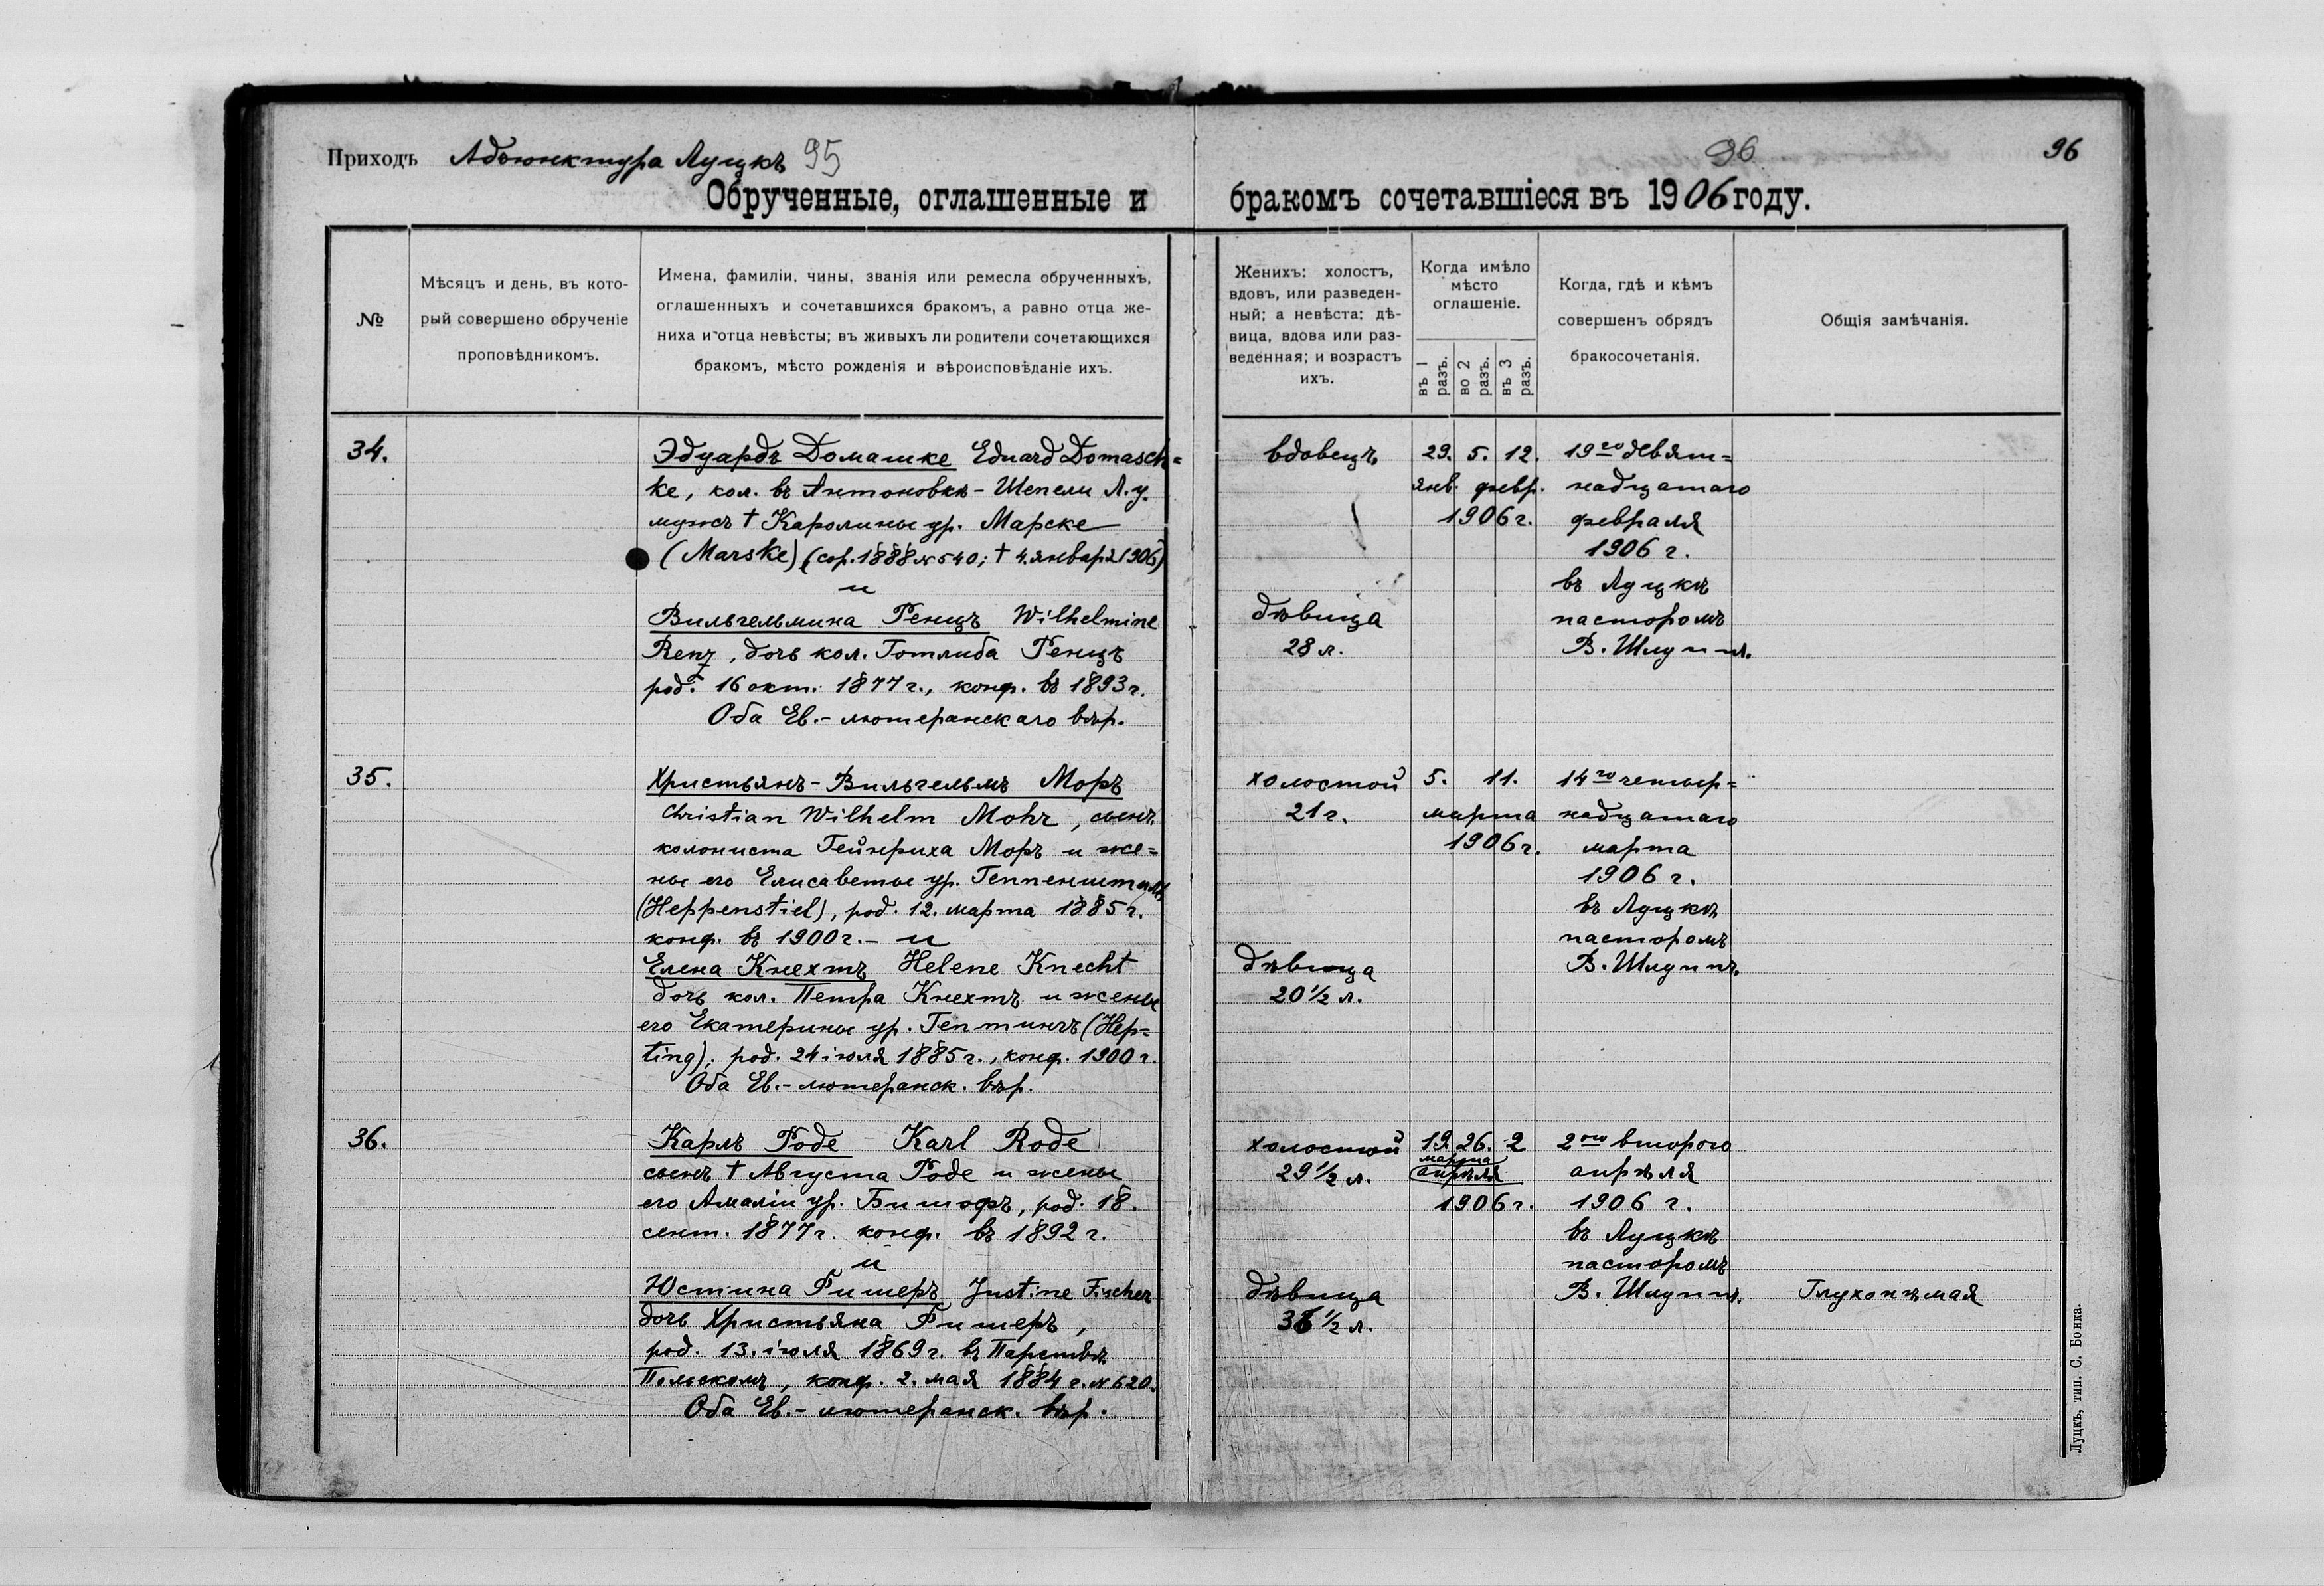 Приходъ Адъюнктура Луцкъ 95
Обрученные, оглашенные и
№
Мѣсяцъ и день, въ кото-
рый совершено обрученіе
проповѣдникомъ.
Имена, фамиліи, чины, званія или ремесла обрученныхъ,
оглашенныхъ и сочетавшихся бракомъ, а равно отца же-
ниха и отца невѣсты; въ живыхъ ли родители сочетающихся
бракомъ, мѣсто рожденія и вѣроисповѣданіе ихъ.
34.
Эдуардъ Домашке Eduard Domasch=
ke, кол. въ Антоновкѣ-Шепели Л. у.
мужъ † Каролины ур. Марске
(Marske) (сор. 1888 № 540; † 4. января 1906)
и
Вильгельмина Ренцъ Wilhelmine
Renz, дочь кол. Готлиба Ренцъ
род. 16 окт. 1877 г., конф. въ 1893 г.
Оба Ев.-лютеранскаго вѣр.
35.
Христьянъ-Вильгельмъ Моръ
Christian Wilhelm Mohr, сынъ
колониста Гейнриха Моръ и же=
ны его Елисаветы ур. Геппенштиль
(Heppenstiel), род. 12. марта 1885 г.
конф. въ 1900 г. – и
Елена Кнехтъ Helene Knecht
дочь кол. Петра Кнехтъ и жены
его Екатерины ур. Гептингъ (Hep=
ting), род. 24 іюля 1885 г., конф. 1900 г.
Оба Ев.-лютеранск. вѣр.
36.
Карлъ Роде Karl Rode
сынъ † Августа Роде и жены
его Амаліи ур. Бишофъ, род. 18.
сент. 1877 г. конф. въ 1892 г.
и
Юстина Фишеръ Justine Fischer
дочь Христьяна Фишеръ,
род. 13. іюля 1869 г. въ Царствѣ
Польскомъ, конф. 2. мая 1884 г. № 620.
Оба Ев.-лютеранск. вѣр.
96
96
бракомъ сочетавшіеся въ 1906 году.
Женихъ: холостъ,
вдовъ, или разведен-
ный; а невѣста: дѣ-
вица, вдова или раз-
веденная; и возрастъ
ихъ.
Когда имѣло
мѣсто
оглашеніе.
въ 1 разъ.
во 2 разъ.
въ 3 разъ.
Когда, гдѣ и кѣмъ
совершенъ обрядъ
бракосочетанія.
Общія замѣчанія.
вдовецъ 29. 5. 12. 19го девят=
янв. февр. надцатаго
1906 г. февраля
1906 г.
въ Луцкѣ
дѣвица пасторомъ
28 л. В. Шлуппъ.
холостой 5. 11. 14го четыр=
21 г. марта надцатаго
1906 г. марта
1906 г.
въ Луцкѣ
пасторомъ
дѣвица В. Шлуппъ.
20 1/2 л.
холостой 19. 26. 2 2ого второго
марта
29 1/2 л. апрѣля апрѣля
1906 г. 1906 г.
въ Луцкѣ
пасторомъ
дѣвица В. Шлуппъ. Глухонѣмая
36 1/2 л.
Луцкъ, тип. С. Бонка